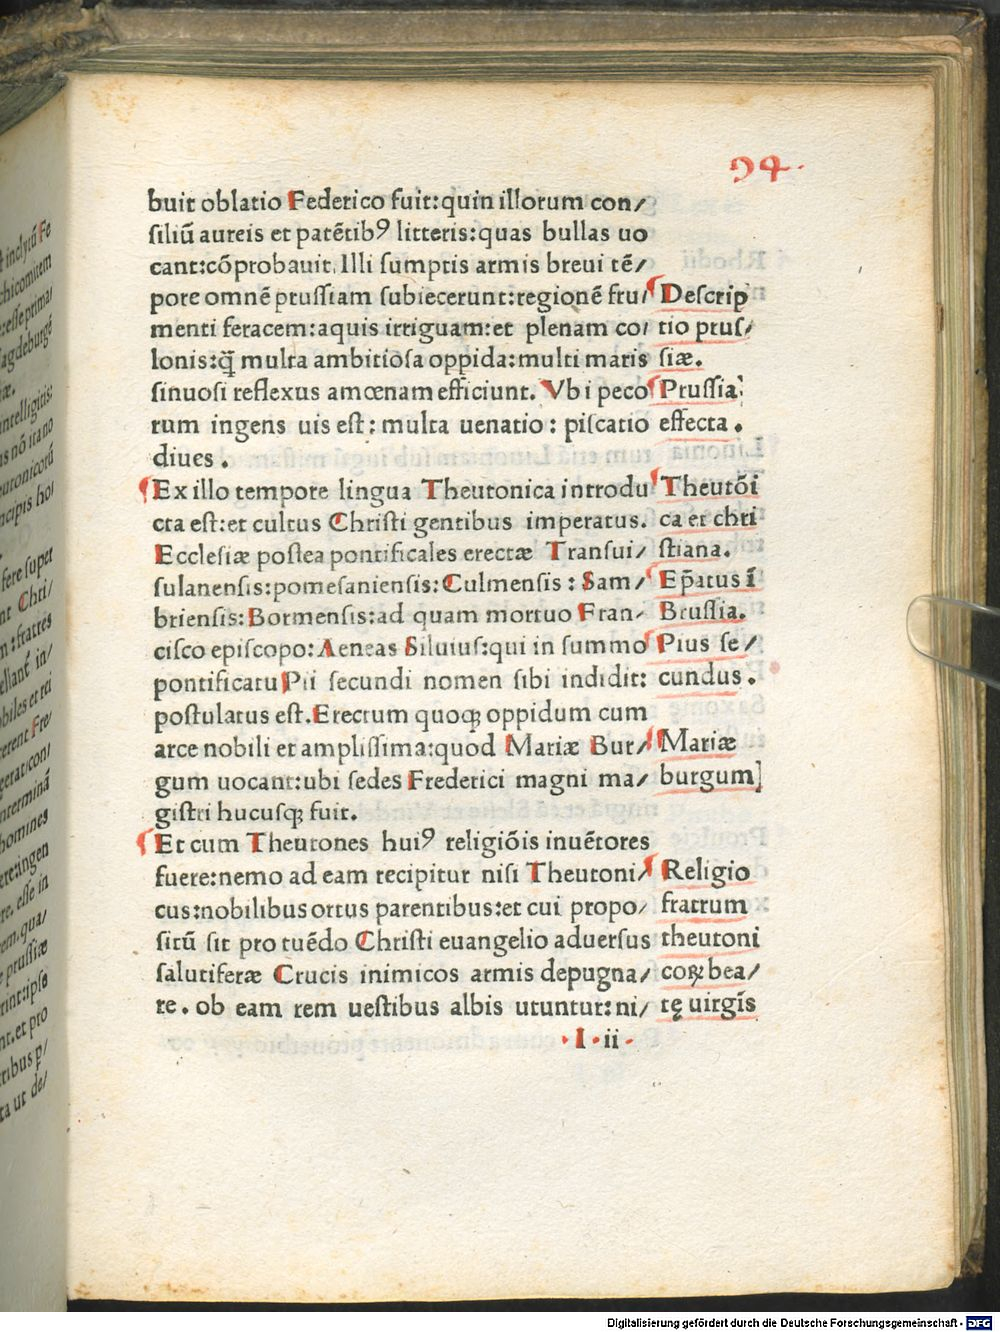 94.
buit oblatio Federico fuit:quin illorum con/
ſiliū aureis et patētibꝰ litteris:quas bullas uo
cant:cōprobauit. Illi ſumptis armis breui tē/
pore omnē pruſſiam ſubiecerunt:regionē fru/
menti feracem:aquis irriguam:et plenam co/
lonis:q̄ multa ambitioſa oppida:multi maris
ſinuoſi reflexus amœnam efficiunt. Vbi peco
rum ingens uis eſt: multa uenatio: piſcatio
diues.
Ex illo tempore lingua Theutonica introdu
cta eſt:et cultus Chriſti gentibus imperatus.
Eccleſiæ poſtea pontificales erectæ Tranſui/
ſulanenſis:pomeſanienſis:Culmenſis: Sam/
brienſis:Bormenſis:ad quam mortuo Fran/
ciſco epiſcopo:Aeneas Siluius:qui in ſummo
pontificatu Pii ſecundi nomen ſibi indidit:
poſtulatus eſt. Erectum quoqꝫ oppidum cum
arce nobili et ampliſſima:quod Mariæ Bur/
gum uocant:ubi ſedes Frederici magni ma/
giſtri hucuſqꝫ fuit.
Et cum Theutones huiꝰ religiōis inuētores
fuere:nemo ad eam recipitur niſi Theutoni/
cus:nobilibus ortus parentibus:et cui propo/
ſitū ſit pro tuēdo Chriſti euangelio aduerſus
ſalutiferæ Crucis inimicos armis depugna/
re. ob eam rem ueſtibus albis utuntur:ni/
I ii
Deſcrip
tio pruſ/
ſiæ.
Pruſſia
effecta.
Theutōi
ca et chri
ſtiana.
Ep̄atus ī
Bruſſia.
Pius ſe/
cundus.
Mariæ
burgum
Religio
fratrum
theutoni
coꝝ bea/
tę uirgīs
Digitalisierung gefördert durch die Deutsche Forschungsgemeinschaft - DFG